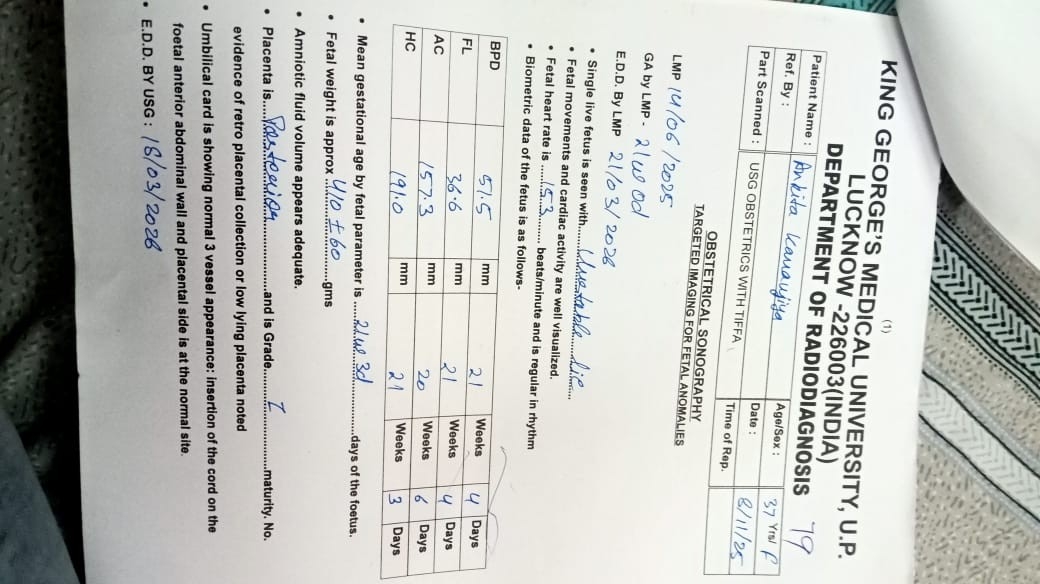 (1)
KING GEORGE'S MEDICAL UNIVERSITY, U.P.
LUCKNOW -226003(INDIA)
DEPARTMENT OF RADIODIAGNOSIS 79
Patient Name : Ankita Kanaujiya Age/Sex : 37 Yrs/ F
Ref. By : Date : 8/11/25
Part Scanned : USG OBSTETRICS WITH TIFFA Time of Rep.
OBSTETRICAL SONOGRAPHY
TARGETED IMAGING FOR FETAL ANOMALIES
LMP 14/06/2025
GA by LMP - 21w 0d
E.D.D. By LMP 21/03/2026
• Single live fetus is seen with.....Unstable lie....
• Fetal movements and cardiac activity are well visualized.
• Fetal heart rate is ......153...... beats/minute and is regular in rhythm
• Biometric data of the fetus is as follows-
BPD 51.5 mm 21 Weeks 4 Days
FL 36.6 mm 21 Weeks 4 Days
AC 157.3 mm 20 Weeks 6 Days
HC 191.0 mm 21 Weeks 3 Days
• Mean gestational age by fetal parameter is .....21w 3d.....days of the foetus.
• Fetal weight is approx ....410 ± 60....gms
• Amniotic fluid volume appears adequate.
• Placenta is.....Posterior.....and is Grade.....I.....maturity. No.
evidence of retro placental collection or low lying placenta noted
• Umbilical card is showing normal 3 vessel appearance: insertion of the cord on the
foetal anterior abdominal wall and placental side is at the normal site.
• E.D.D. BY USG : 18/03/2026